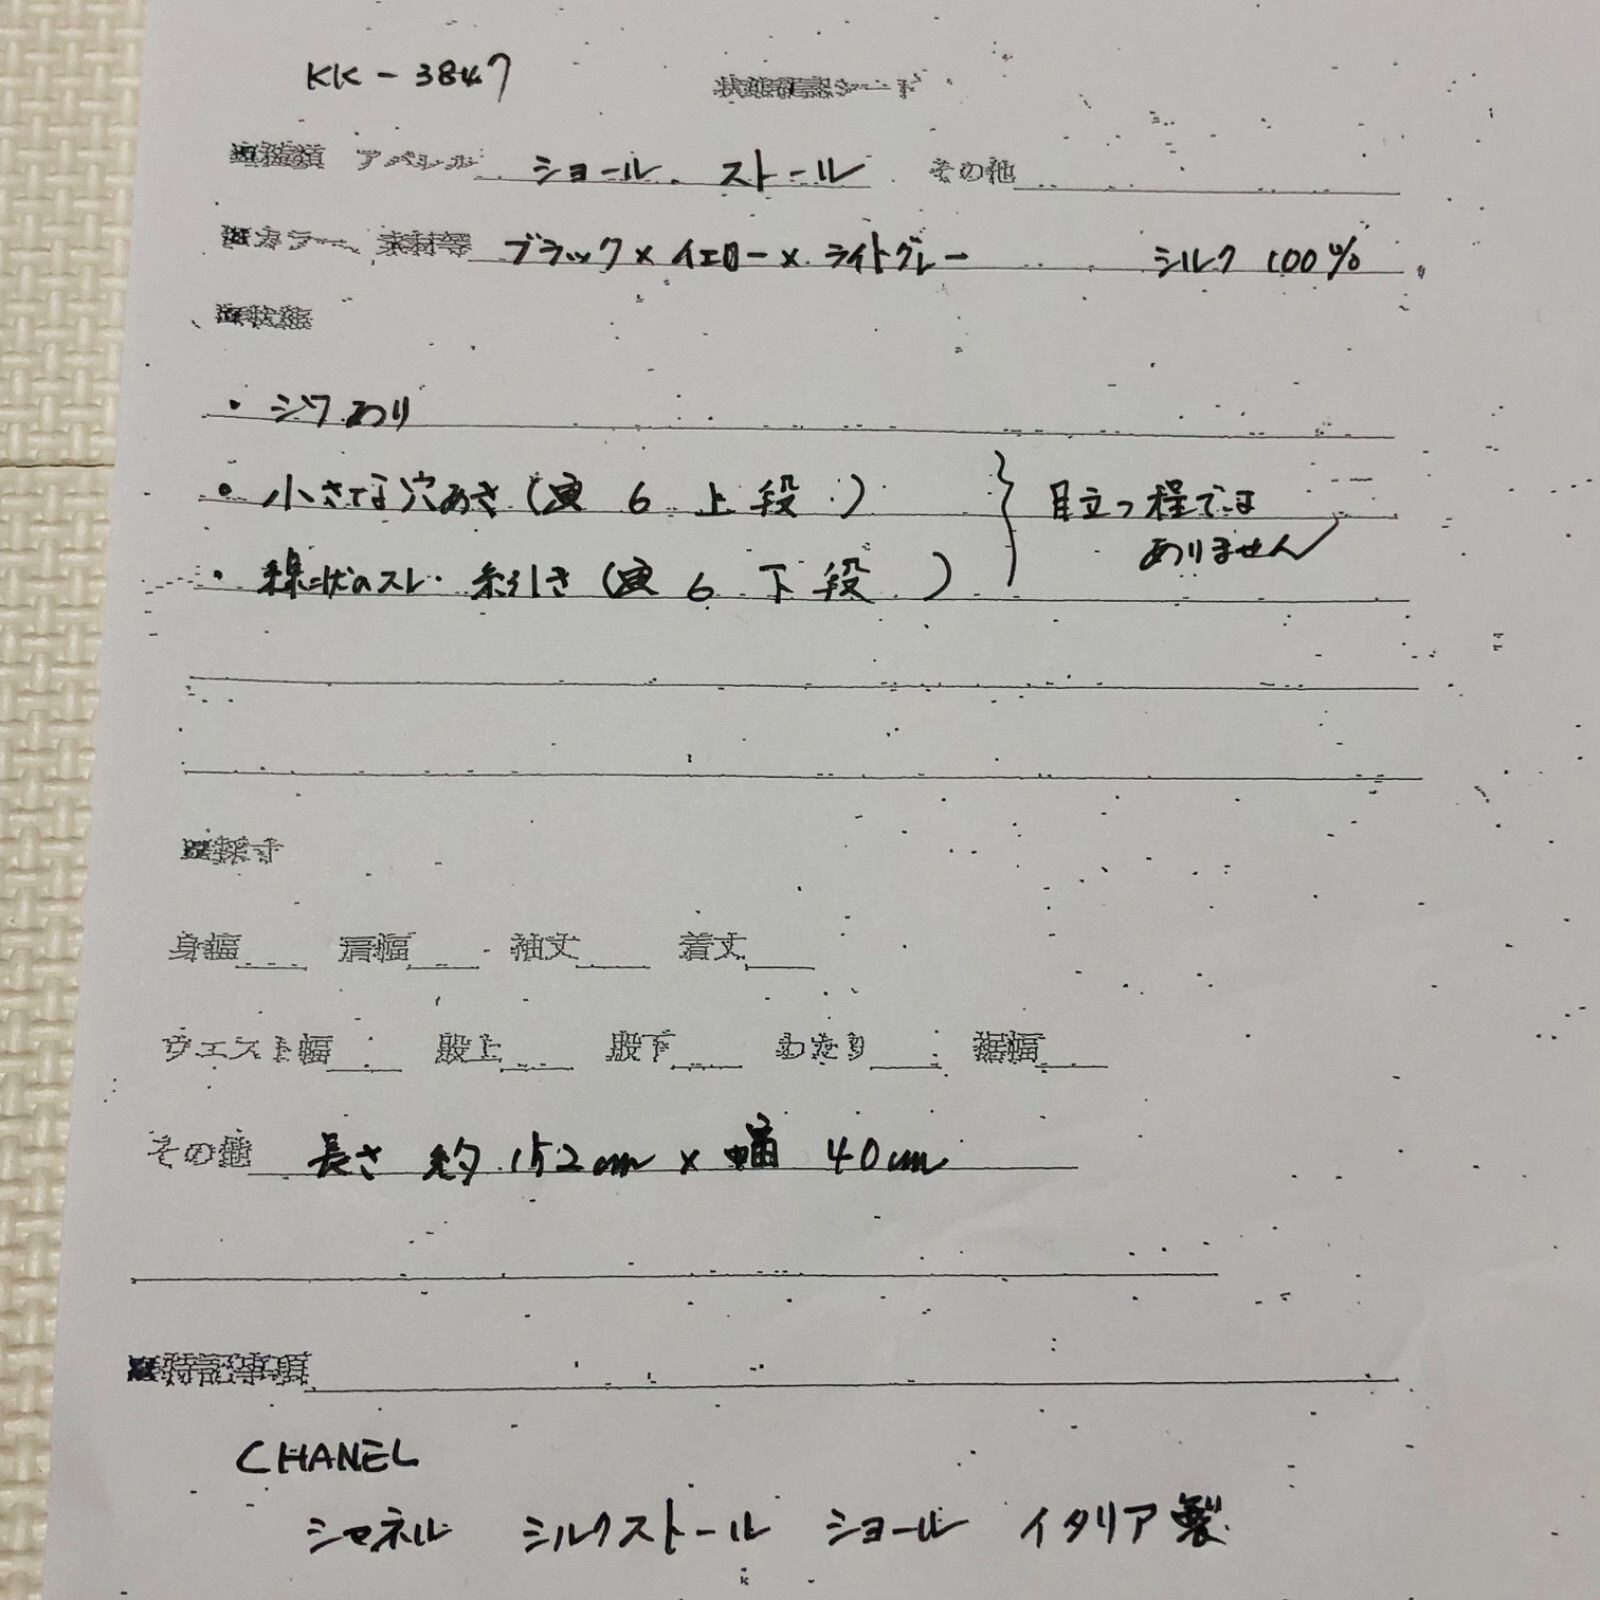 KK-3847 状態確認シート
■種類 アパレル ショール. ストール その他
■カラー、素材等 ブラック×イエロー×ライトグレー シルク 100%
■状態
・シワあり
・小さな穴あき(写 6 上段) } 目立つ程では
ありません
・線状のスレ・糸引き(写 6 下段)
■採寸
身幅 肩幅 袖丈 着丈
ウエスト幅 股上 股下 わたり 裾幅
その他 長さ 約 152cm × 幅 40cm
■特記事項
CHANEL
シャネル シルクストール ショール イタリア製